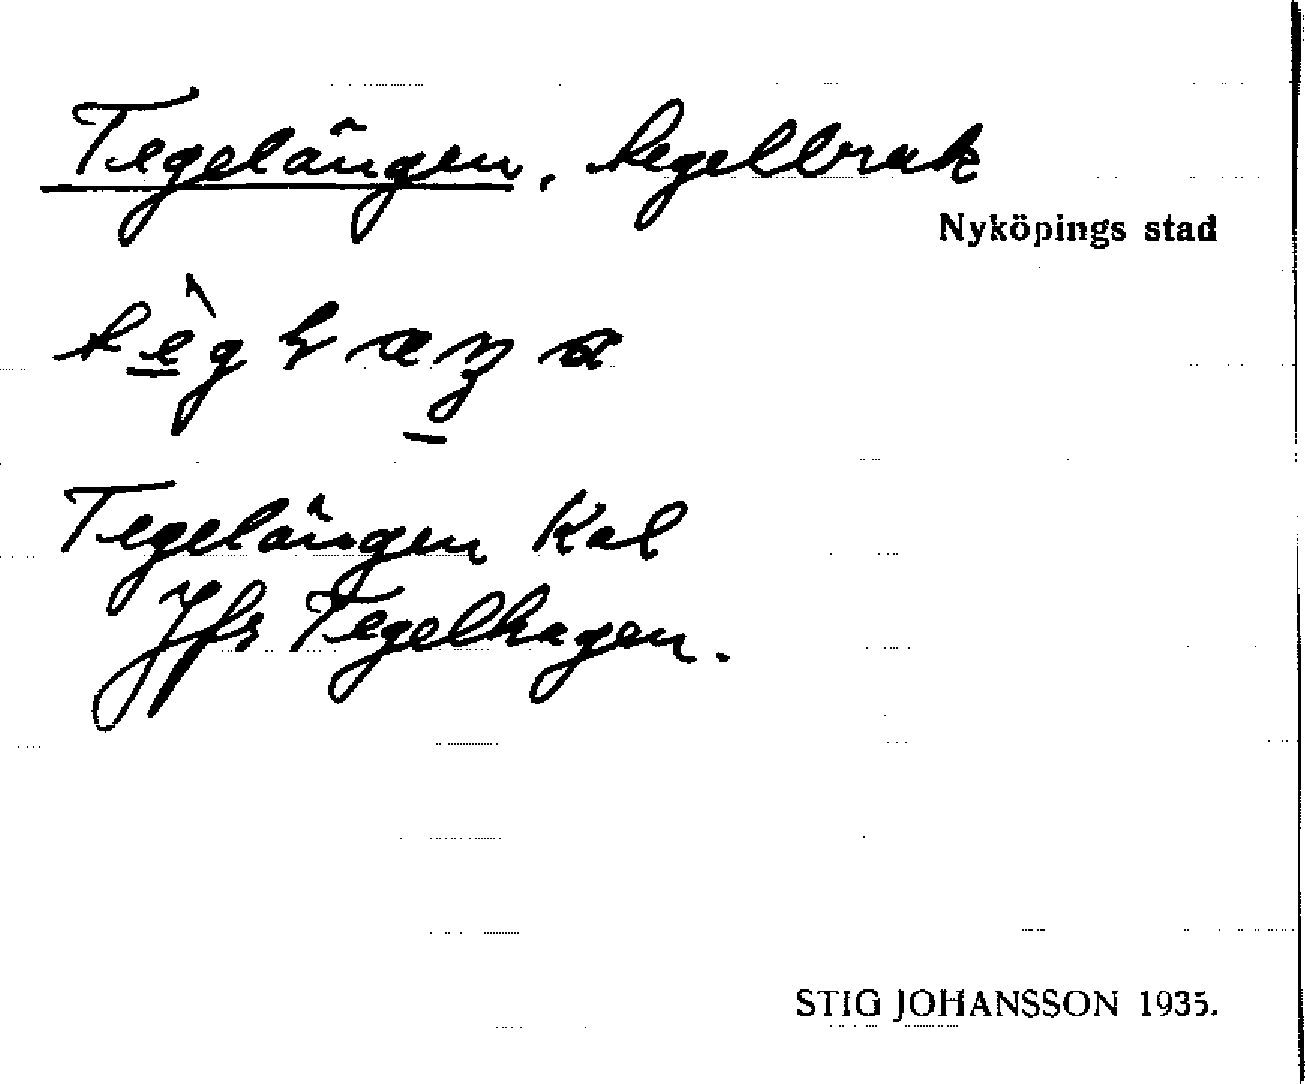 Tegelängen, tegelbruk
Nyköpings stad
Tegelängen Kal
Jfr Tegelhagen.
STIG JOHANSSON 1935.